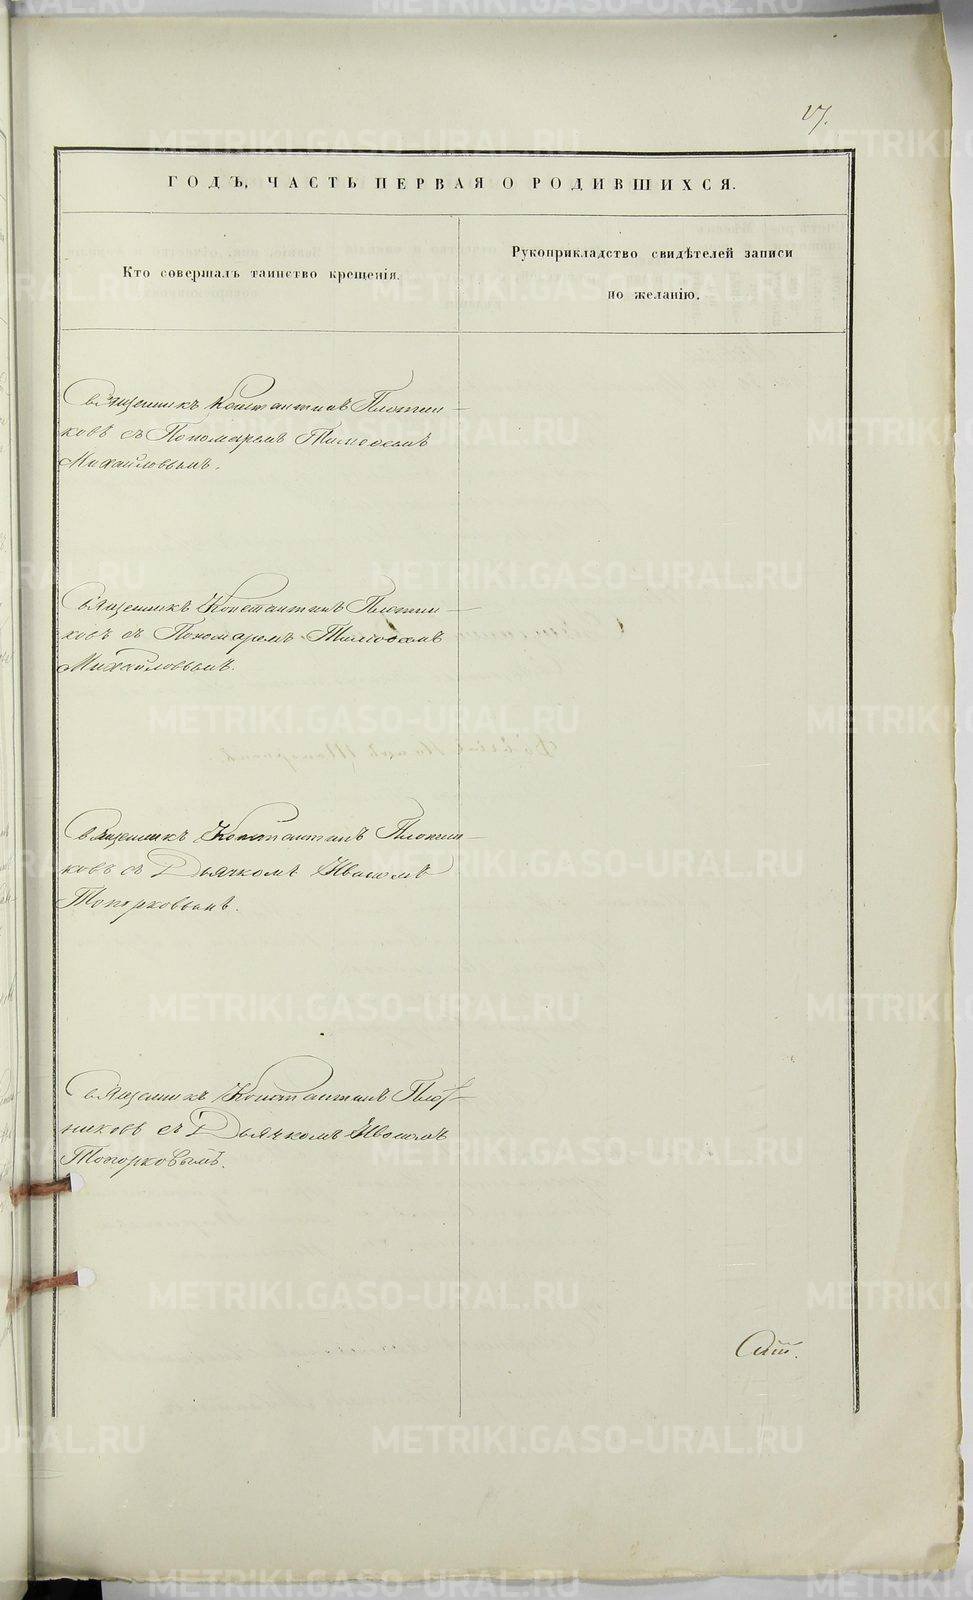 17.
ГОДЪ, ЧАСТЬ ПЕРВАЯ О РОДИВШИХСЯ.
Кто совершалъ таинство крещенія.
Рукоприкладство свидѣтелей записи
по желанію.
Священникъ Константинъ Плотни-
ковъ съ Пономаремъ Тимоѳеемъ
Михайловымъ.
Священникъ Константинъ Плотни-
ковъ съ Пономаремъ Тимоѳеемъ
Михайловымъ.
Священникъ Константинъ Плотни-
ковъ съ Дьячкомъ Иваномъ
Топорковымъ.
Священникъ Константинъ Плот-
никовъ съ Дьячкомъ Иваномъ
Топорковымъ.
METRIKI.GASO-URAL.RU